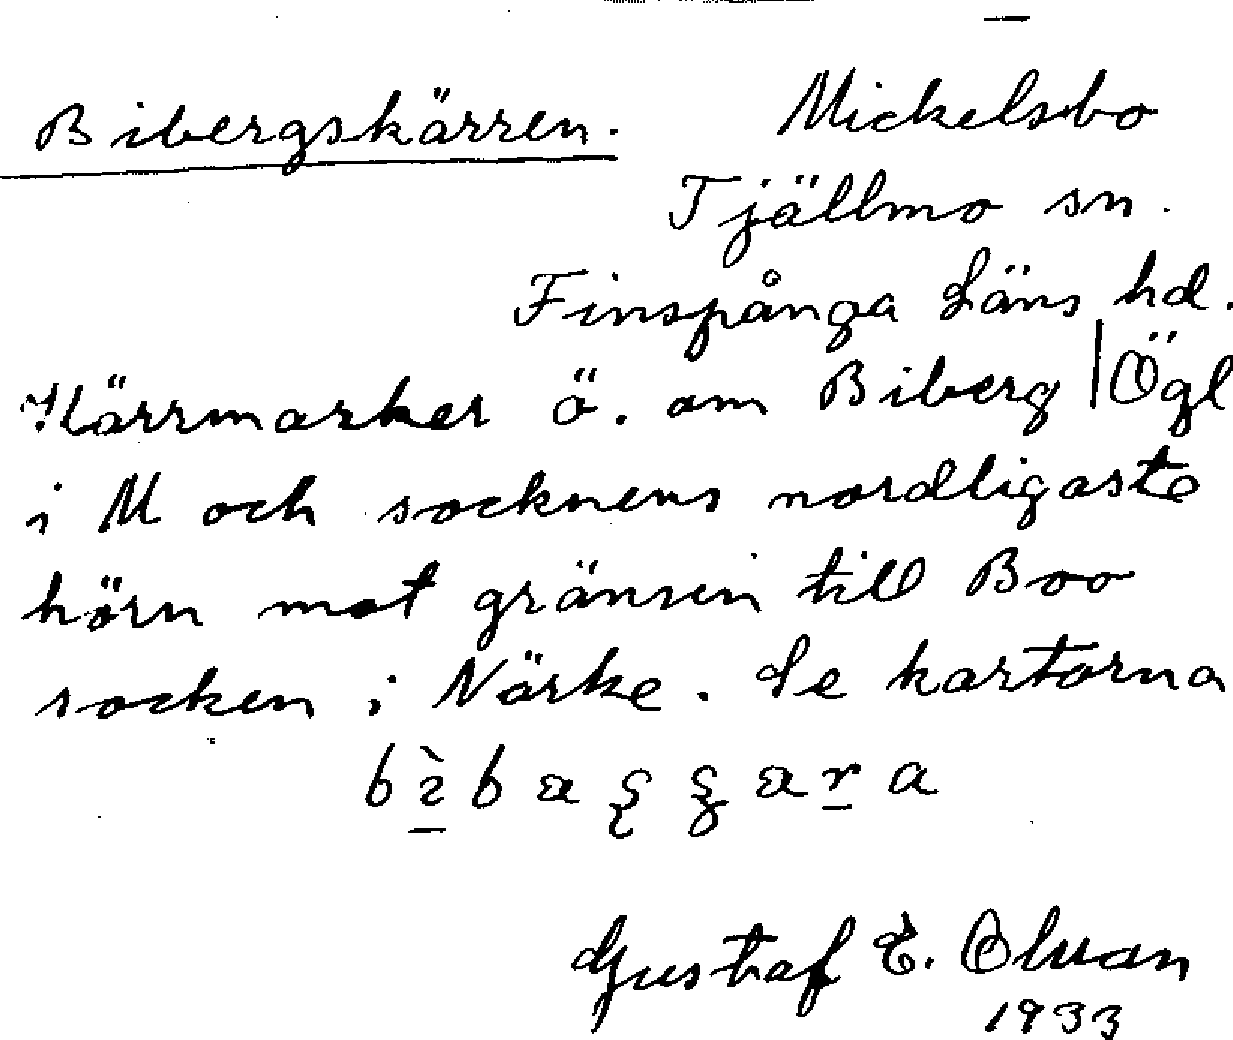 Bibergskärren. Mickelsbo
Tjällmo sn.
Finspånga Läns hd.
Kärrmarker ö. om Biberg | Ögl
i M och socknens nordligaste
hörn mot gränsen till Boo
socken i Närke. Se kartorna
Gustaf E. Olsson
1933